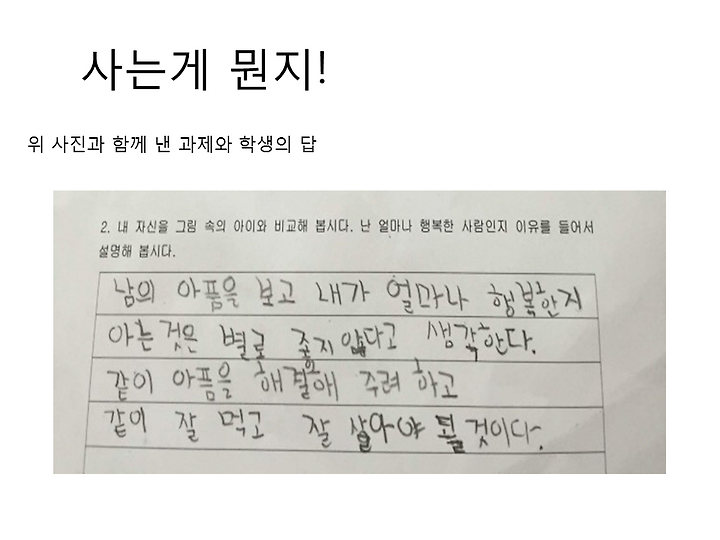 사는게 뭔지!
위 사진과 함께 낸 과제와 학생의 답
2. 내 자신을 그림 속의 아이와 비교해 봅시다. 난 얼마나 행복한 사람인지 이유를 들어서
설명해 봅시다.
남의 아픔을 보고 내가 얼마나 행복한지
아는 것은 별로 좋지 않다고 생각한다.
같이 아픔을 해결해 주려 하고
같이 잘 먹고 잘 살아야 될 것이다.